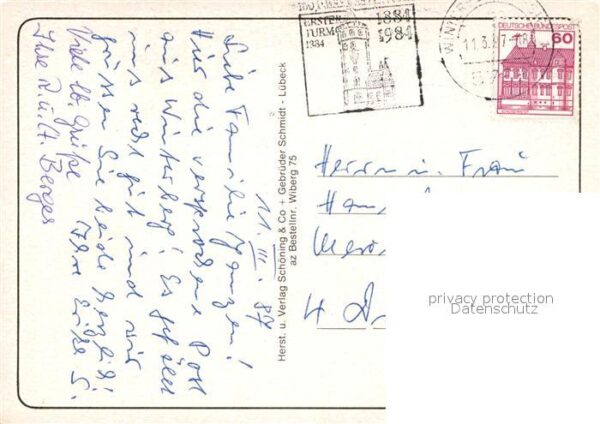 11. III. 87
Liebe Familie
Hier die versprochene Post
aus Winterberg! Es gefällt
uns recht gut und wir
grüßen Sie beide herzlich!
Ihre
Viele lb. Grüße
Ihre R. u. A. Berges
Herst. u. Verlag Schöning & Co + Gebrüder Schmidt - Lübeck
az Bestellnr. Wiberg 75
ERSTER
TURM
1884
1884
1984
11.3.87
DEUTSCHE BUNDESPOST
60
Herrn u. Frau
4 D
privacy protection
Datenschutz